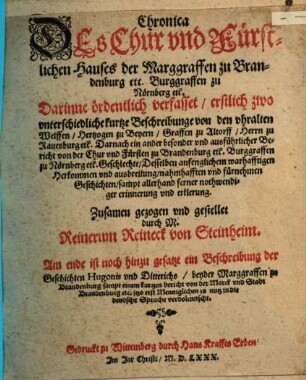 Chronica
DEs Chur vnd Fürst-
lichen Hauses der Marggraffen zu Bran-
denburg etc. Burggraffen zu
Nörnberg etc.
Darinne ördentlich verfasset / erstlich zwo
vnterschiedliche kurtze Beschreibunge von den vhralten
Welffen / Hertzogen zu Beyern / Graffen zu Altorff / Herrn zu
Rauensburg etc. Darnach ein ander besonder vnd ausführlicher Be-
richt von der Chur vnd Fürsten zu Brandenburg etc. Burggraffen
zu Nörnberg etc. Geschlechte / Desselben anfenglichem warhafftigen
Herkommen vnd ausbreitung / nahmhafften vnd fürnehmen
Geschichten / sampt allerhand ferner nothwendi-
ger erinnerung vnd erklerung.
Zusamen gezogen vnd gestellet
durch M.
Reinerum Reineck von Steinheim.
Am ende ist noch hinzu gesatzt ein Beschreibung der
Geschichten Hugonis vnd Ditterichs / beyder Marggraffen zu
Brandenburg sampt einem kurtzen bericht von der Marck vnd Stadt
Brandenburg etc. zuo erst Menniglichen zu nutz in die
deudsche Sprache verdolmetscht.
Gedruckt zu Wittemberg durch Hans Kraffts Erben /
Im Jar Christi / M. D. LXXX.